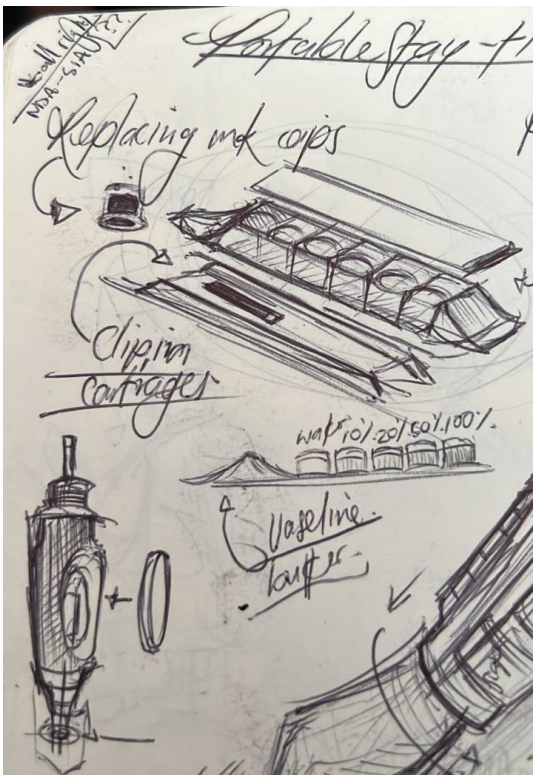 NDA-SIAL??
Portable Stay-
Replacing ink caps
Clip, in
cartrages
water 10% 20% 50% 100%
Vaseline
buffer